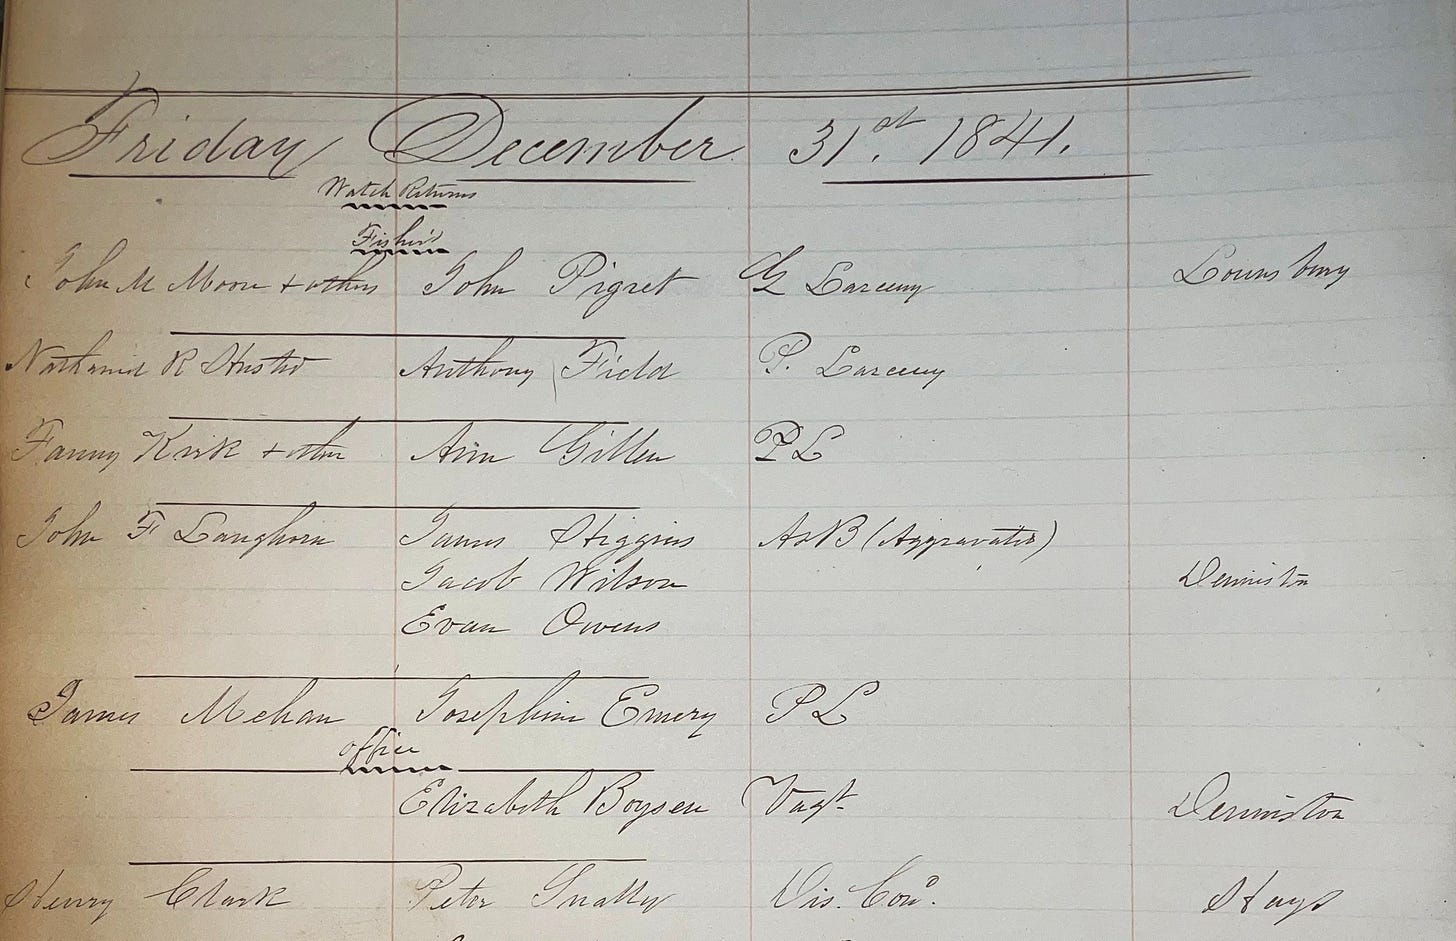 Friday December 31st. 1841.
Watch Returns
Fisher
John M Moore + others John Pigret G Larceny Lounsbury
Nathaniel R Husted Anthony Field P. Larceny
Fanny Kirk + other Ann Gillen P L
John F Langhorn James Higgins A&B (Aggravated)
Jacob Wilson Denniston
Evan Owens
James Mehan Josephine Emery P L
office
Elizabeth Boysen Vagt. Denniston
Henry Clark Peter Dis. Con. Hays